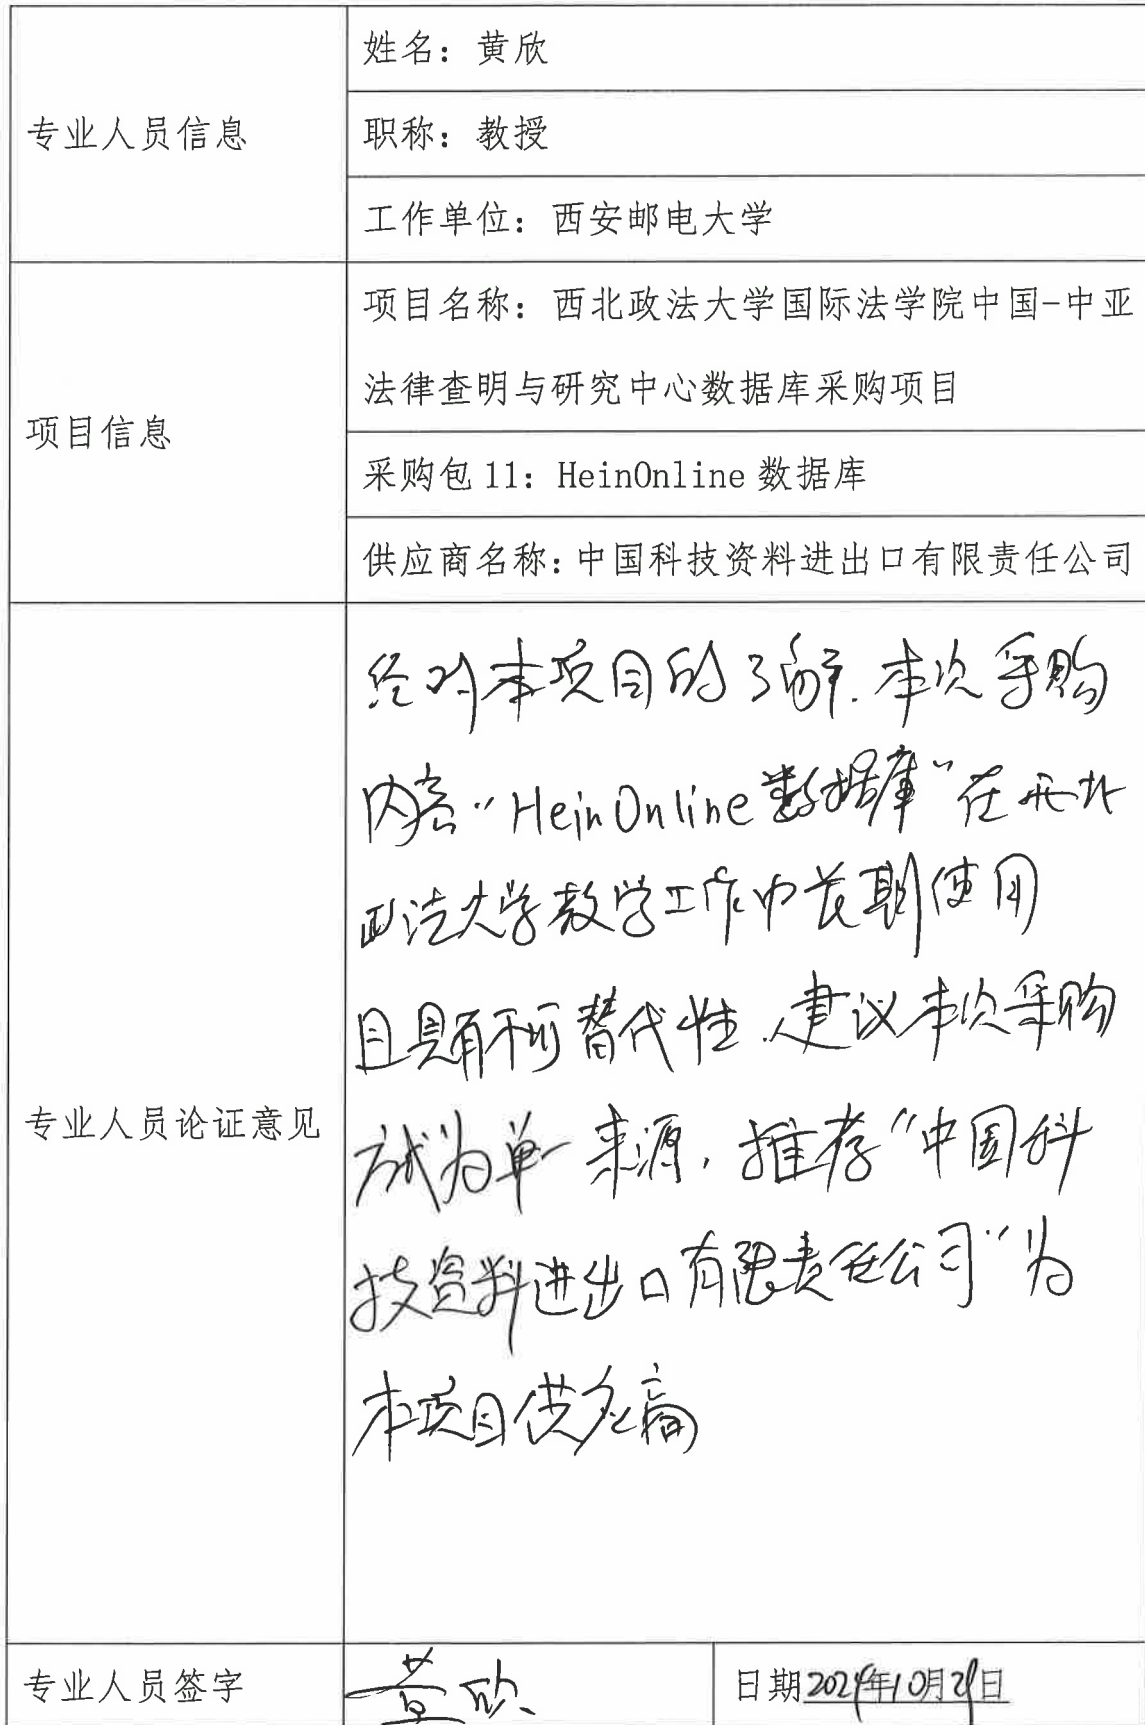 专业人员信息
姓名：黄欣
职称：教授
工作单位：西安邮电大学
项目信息
项目名称：西北政法大学国际法学院中国-中亚
法律查明与研究中心数据库采购项目
采购包11：HeinOnline数据库
供应商名称：中国科技资料进出口有限责任公司
专业人员论证意见
经对本项目的了解.本次采购
内容“HeinOnline数据库”在西北
政法大学教学工作中长期使用
且具有不可替代性.建议本次采购
方式为单一来源，推荐“中国科
技资料进出口有限责任公司”为
本项目供应商
专业人员签字
黄欣
日期2024年10月29日